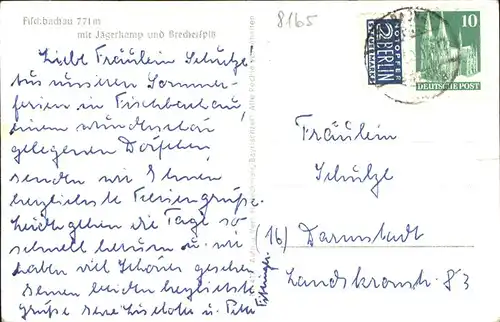 Fischbachau 771 m
mit Jägerkamp und Brecherspitz
8165
NOTOPFER
2 BERLIN
STEUERMARKE
10
DEUTSCHE POST
Liebe Fräulein Schultze!
Aus unseren Sommer-
ferien in Fischbachau,
einem wunderschön
gelegenen Dörfchen,
senden wir Ihnen
herzlichste Feriengrüße.
Leider gehen die Tage so
schnell herum u. wir
haben viel Schönes gesehen
Ihnen beiden herzlichste
Grüße Ihre Liselotte u. Peter
Fräulein
Schultze
(16) Darmstadt
Landskronstr. 83